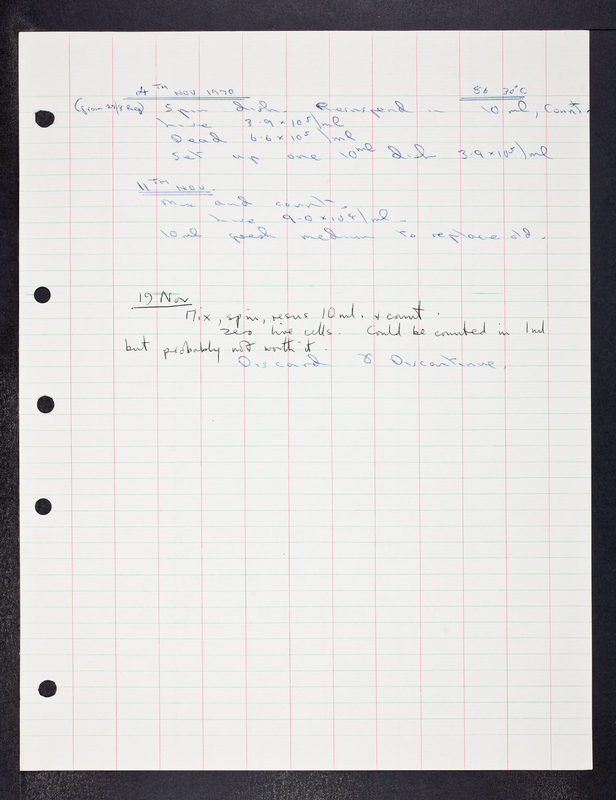 4TH NOV 1970 86 30°C
(from 29/8 Reg) Spin dish. Resuspend in 10 ml, count.
Live 3.9 × 10⁵/ml
Dead 6.6 × 10⁵/ml
Set up one 10ml dish 3.9 × 10⁵/ml
11TH NOV.
Mix and count.
Live 9.0 × 10⁴/ml.
10ml fresh medium to replace old.
19 Nov
Mix, spin, resus 10 ml. & count.
Zero live cells. Could be counted in 1ml
but probably not worth it.
Discard & Discontinue.